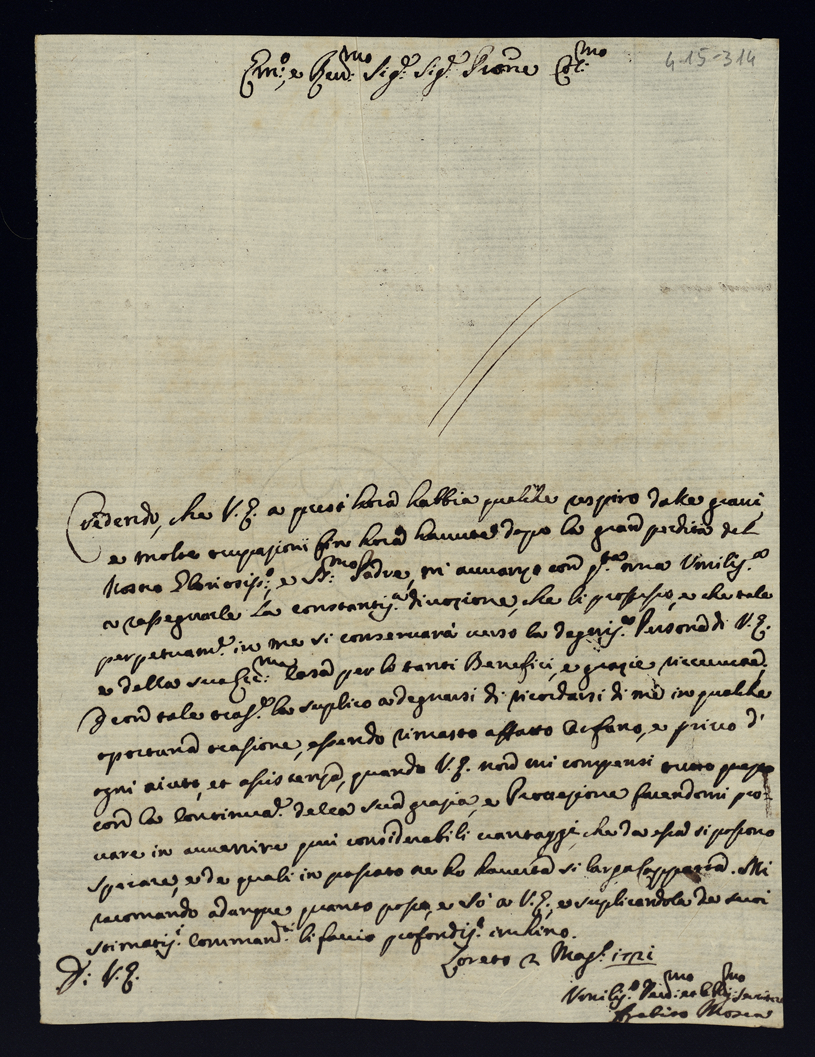 4-15-314
Em.o e Reu.mo Sig.r Sig.r Prone Col.mo
Credendo, che V. E. a quest' hora habbia qualche respiro dalle graui,
e molte ocupazioni fin hora hauute dopo la gran perdita del
Nostro Gloriosiss.o, e S.mo Padre, mi auuanzo con q.ta mia Vmiliss.a
a rassegnarle La constantiss.a diuozione, che li professo, e che tale
perpetuam.te in me si conseruarà uerso la degniss.a Persona di V. E.
e della sua Ecc.ma Casa per li tanti Benefici, e grazie riceuute,
e con tale ocas.e la suplico a degnarsi di ricordarsi di me in qualche
oportuna ocasione, essendo rimasto affatto Orfano, e priuo d'
ogni aiuto, et assistenza, quando V. E. non mi compensi tutto questo
con la continuaz.e della sua grazia, e Protezione facendomi pro-
uare in auuenire quei considerabili uantaggi, che da essa si possono
sperare, e de quali in passato ne ho hauuta si larga Caparra. Mi
racomando adunque quanto posso, e sò a V. E., e suplicandola de suoi
stimatiss.i Commandi li faccio profondiss.o inchino.
Loreto 2 Mag.o 1721
D: V. E.
Vmiliss.o Deu.mo et Obl.mo Seruitore
Mosca